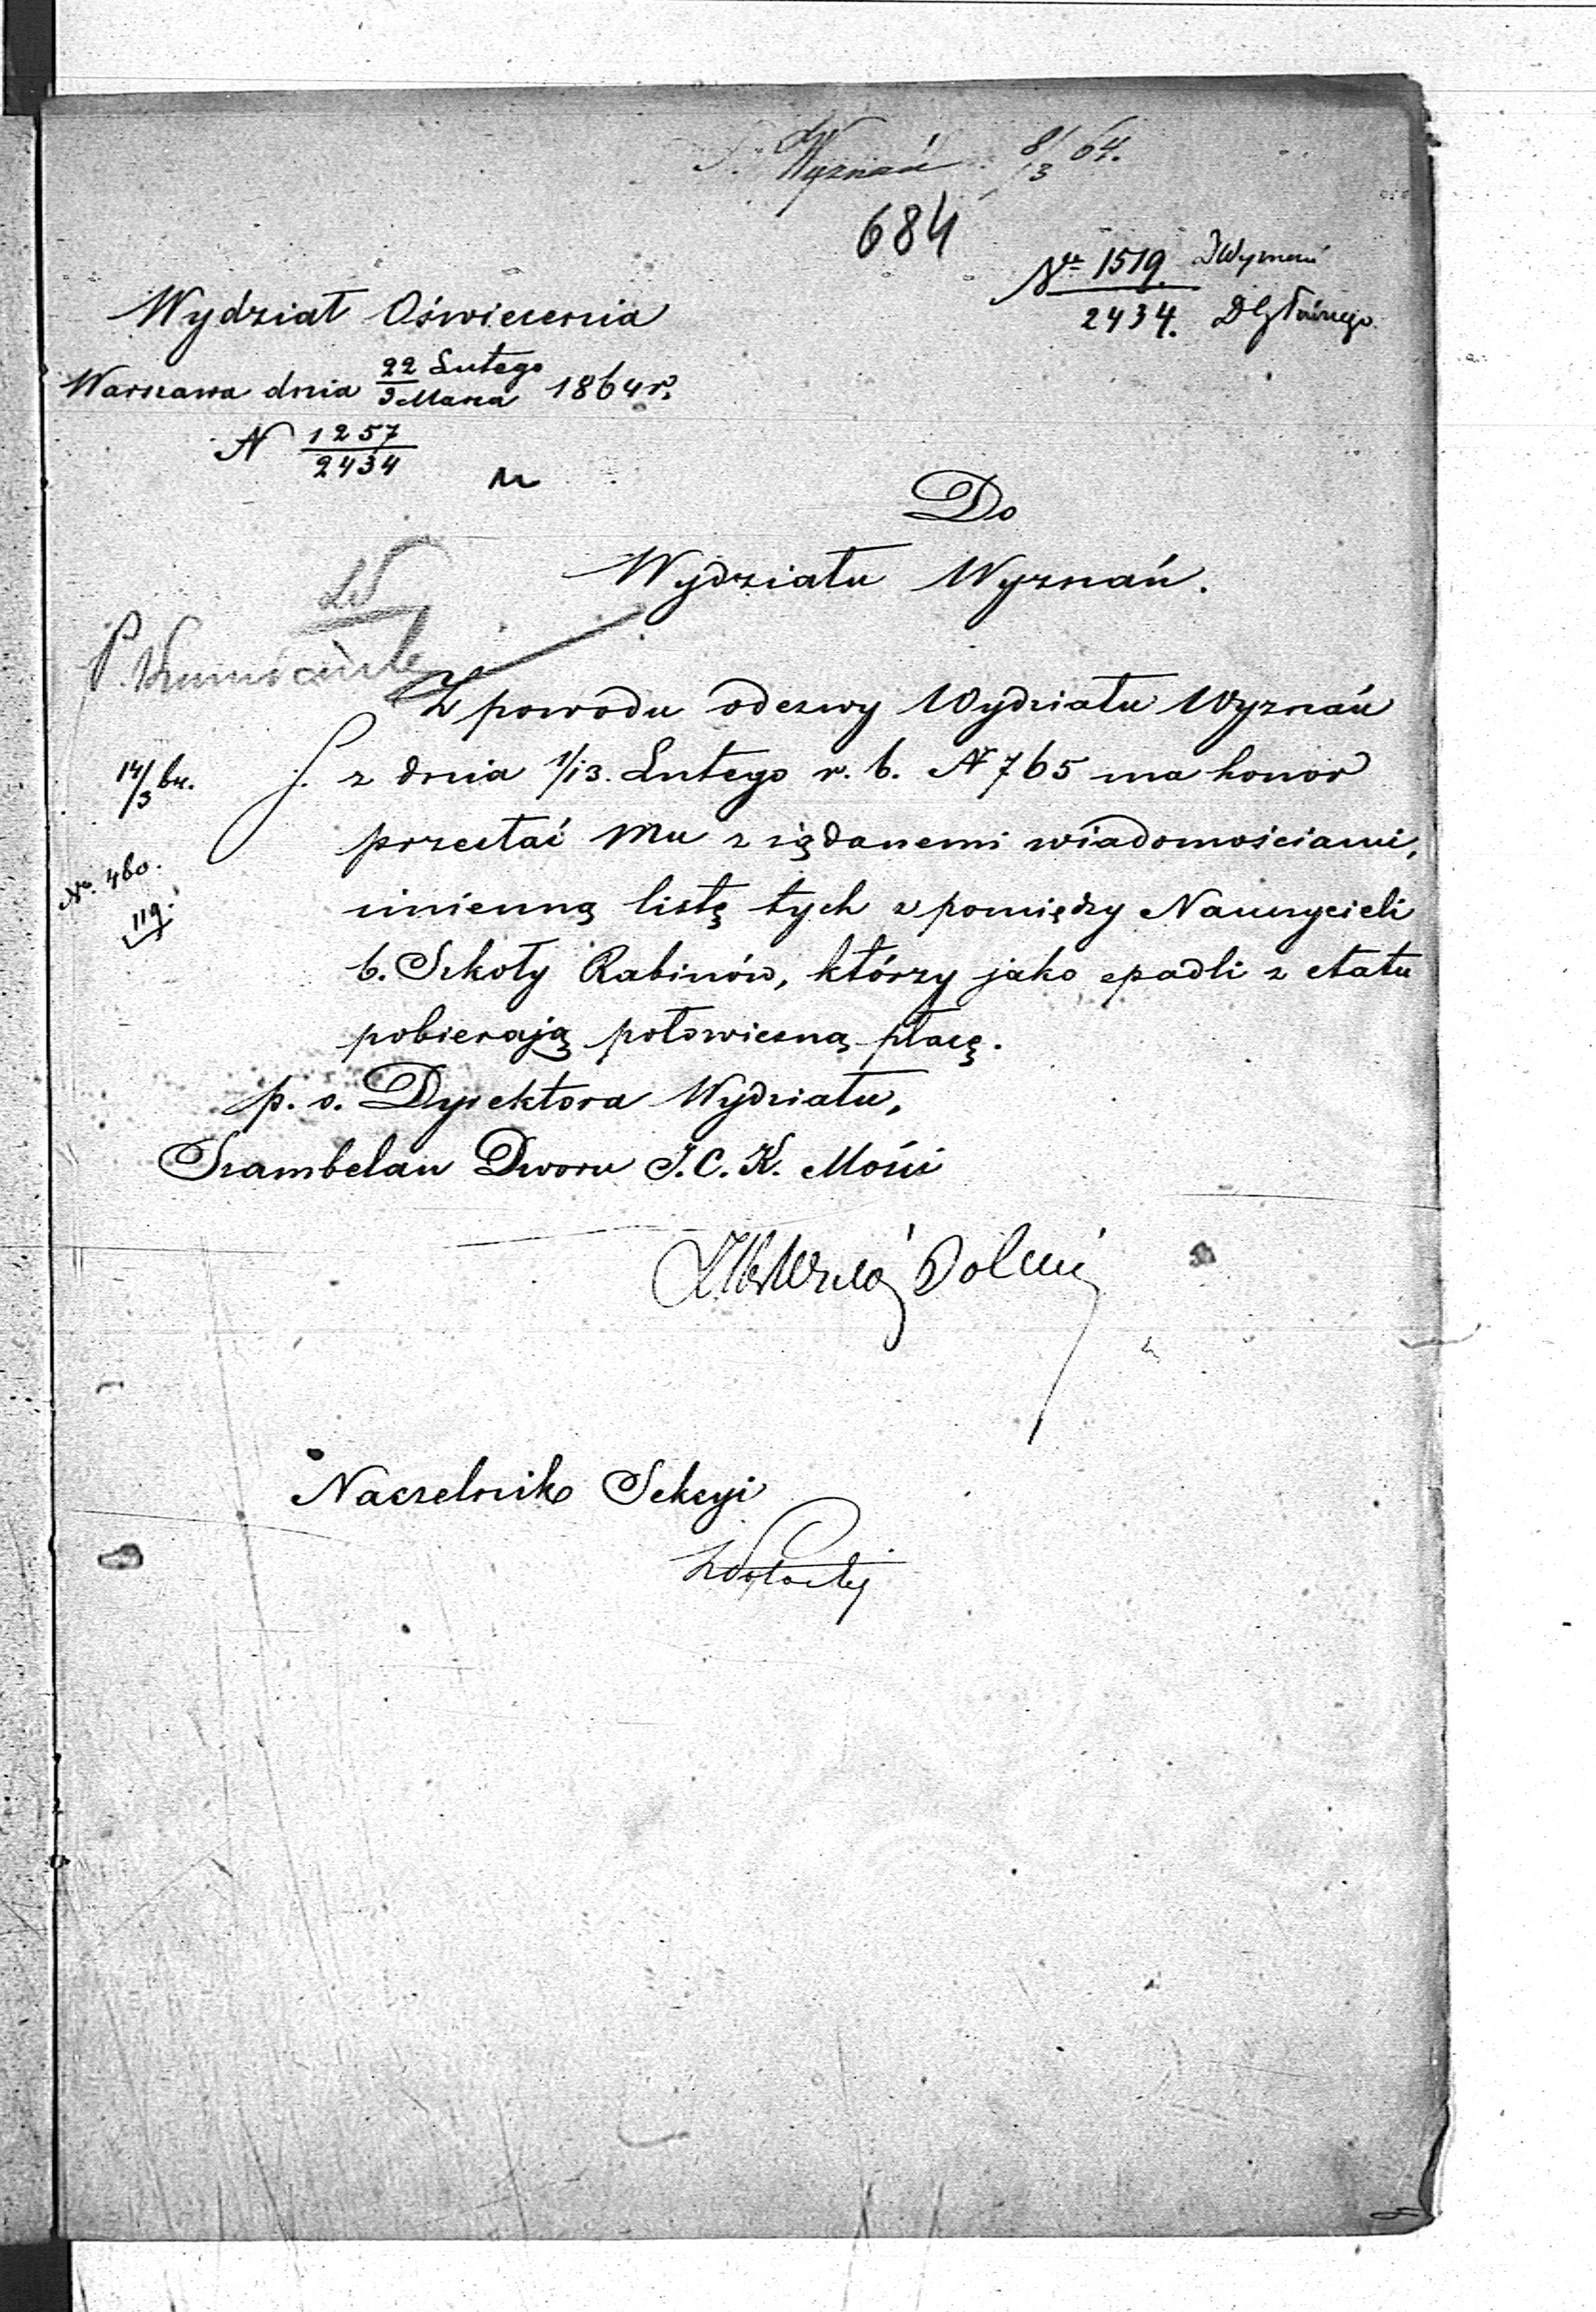 Wyznań 8/3 64.
684
№ 1519. DWyznań
2434. DGłównego
Wydział Oświecenia
Warszawa dnia 22 Lutego / 5 Marca 1864 r.
N 1257
2434
Do
Wydziału Wyznań.
P.
Z powodu odezwy Wydziału Wyznań
14/3 64. z dnia 1/13. Lutego r. b. N 765 ma honor
przesłać Mu z żądanemi wiadomościami,
No. 460. imienną listę tych z pomiędzy Nauczycieli
119. b. Szkoły Rabinów, którzy jako spadli z etatu
pobierają połowiczną płacę.
p. o. Dyrektora Wydziału,
Szambelan Dworu J. C. K. Mości
Naczelnik Sekcyi